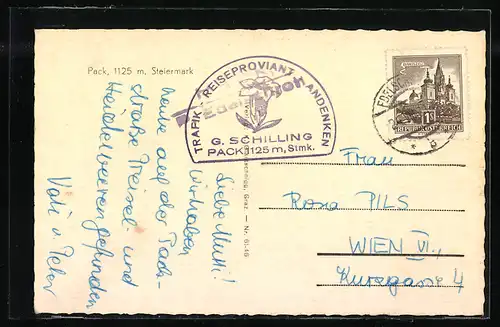 Pack, 1125 m, Steiermark
TRAFIK REISEPROVIANT ANDENKEN
G. SCHILLING
PACK 1125 m, Stmk.
Liebe Mutti!
Wir haben
heute auf der Pack-
straße Preisel- und
Heidelbeeren gefunden
Vati u. Peter
1S
REPUBLIK ÖSTERREICH
Frau
Rosa PILS
WIEN VI.,
Kurzgasse 4
Graz - Nr. 61.46